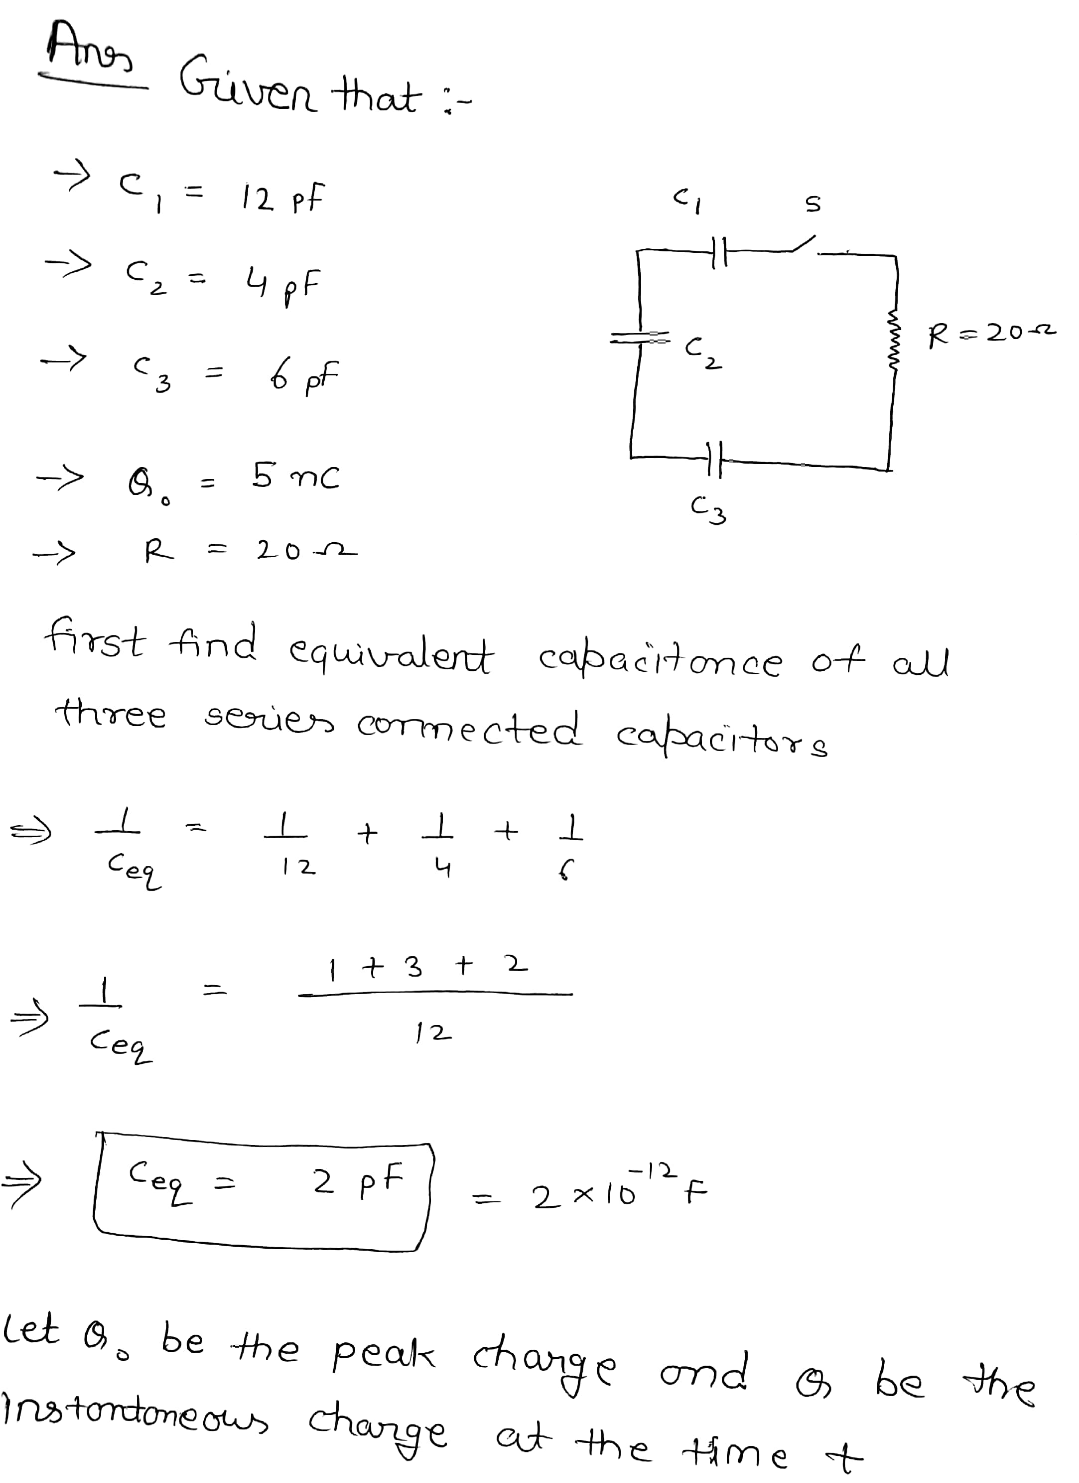 Ans Given that :-
→ C₁ = 12 pF
C₁ S
→ C₂ = 4 pF
→ C₃ = 6 pF
C₂ R = 20 Ω
C₃
→ Q₀ = 5 nC
→ R = 20 Ω
first find equivalent capacitance of all
three series connected capacitors
⇒ 1/Ceq = 1/12 + 1/4 + 1/6
⇒ 1/Ceq = (1 + 3 + 2)/12
⇒ Ceq = 2 pF = 2 × 10⁻¹² F
Let Q₀ be the peak charge and Q be the
instantaneous charge at the time t